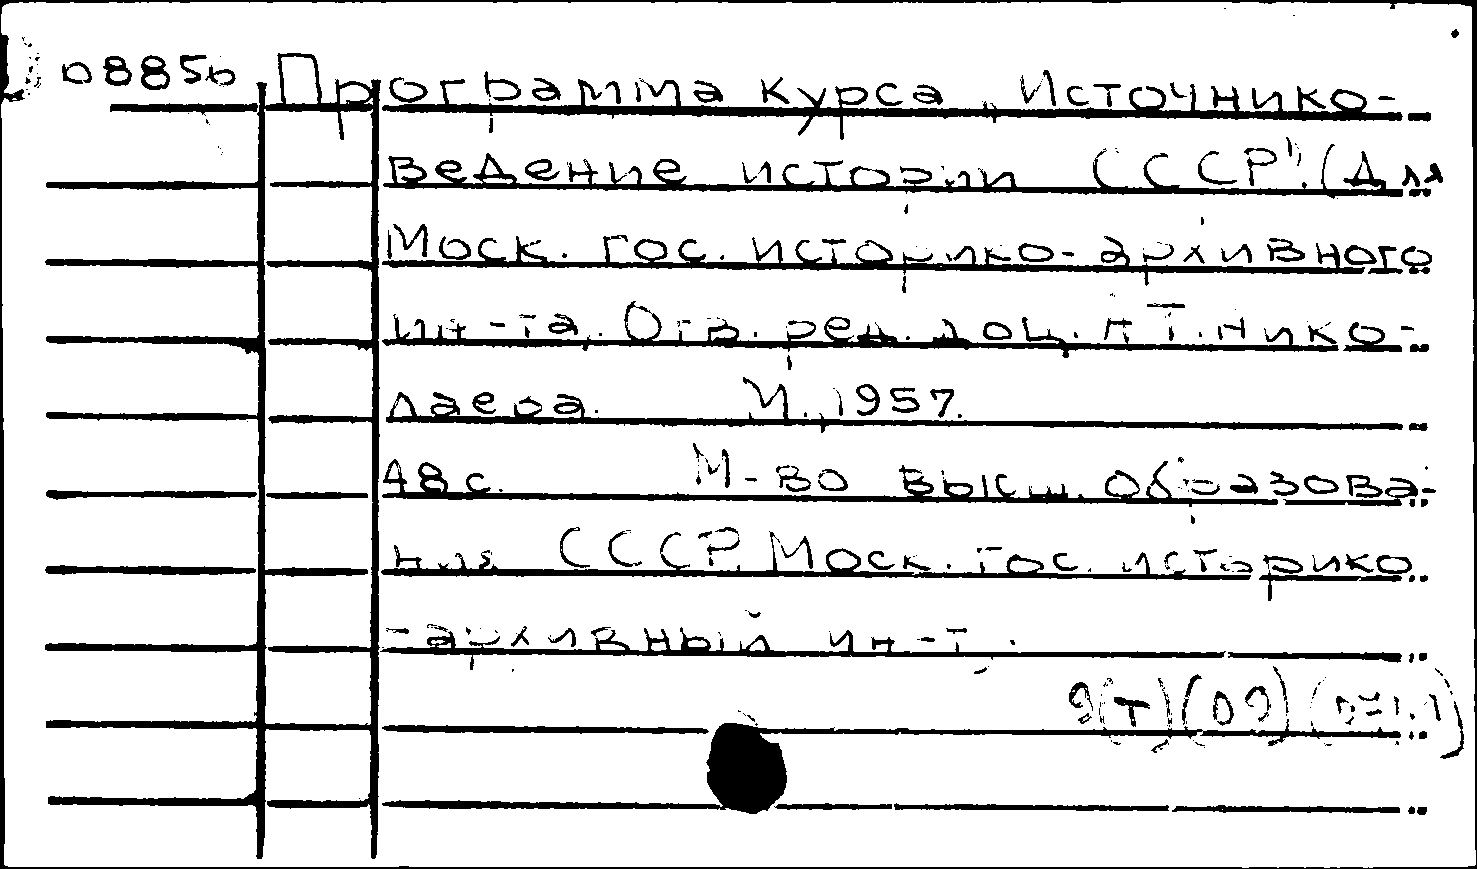 Программа курса „Источнико-
ведение истории СССР". (Для
Моск. гос. историко-архивного
ин-та. Отв. ред. доц. А.Т. Нико-
лаева. М., 1957.
48 с. М-во высш. образова-
ния СССР. Моск. гос. историко
-архивный ин-т.
9(Т)(09)(071.1)